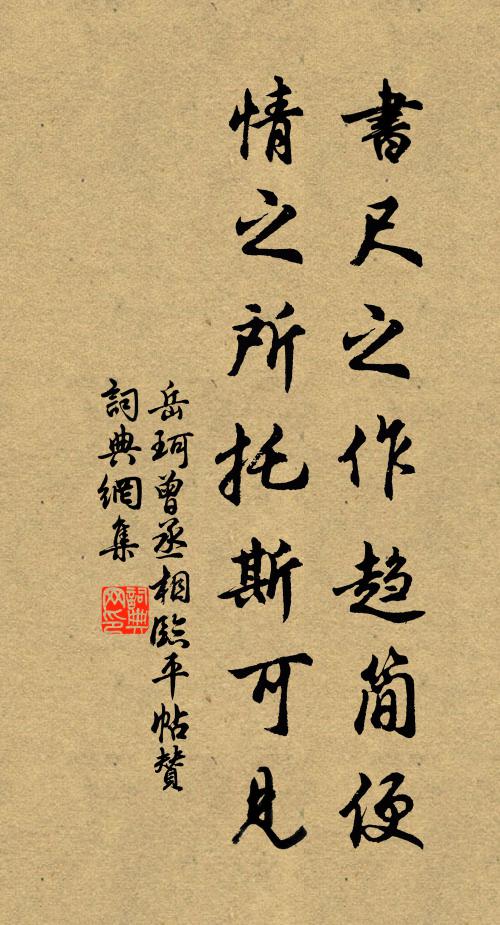 書尺之作趋简便
情之所托斯可見
岳珂曾丞相臨平帖贊
詞典網集
詞典网印